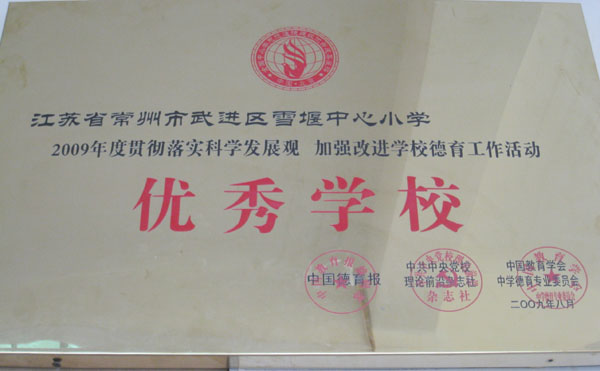 江苏省常州市武进区雪堰中心小学
2009年度贯彻落实科学发展观 加强改进学校德育工作活动
优秀学校
中国德育报
中共中央党校
理论前沿杂志社
中国教育学会
中学德育专业委员会
二〇〇九年八月